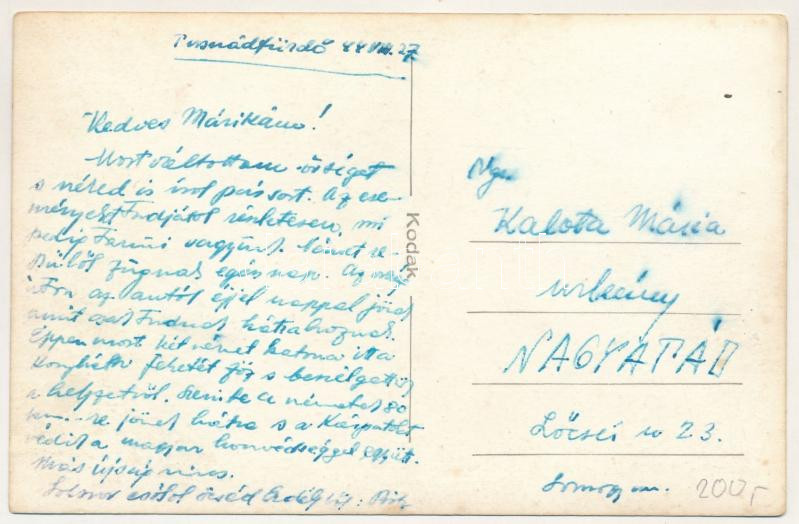 Tusnádfürdő 44 VIII. 27
Kedves Márikám!
Most váltottam őrséget
s néked is írok pár sort. Az ese-
ményeket Tudjátok részletesen, mi
pedig Tanúi vagyunk. Német re-
pülők zúgnak egész nap. Az
úton az autók éjjel nappal
amit csak Tudnak hátrahoznak.
Éppen most két német katona itta
Konyhám feketét főz s beszélget
a helyzetről. Szerinte a németek 80
km.-re jönek hátra s a Kárpátok
védik a magyar honvédséggel együtt.
Más újság nincs.
Sokszor csókol
Kodak
Ngs.
Kalota Mária
urleány
NAGYATÁD
Lőcsei u 23.
Somogy m.
200,-